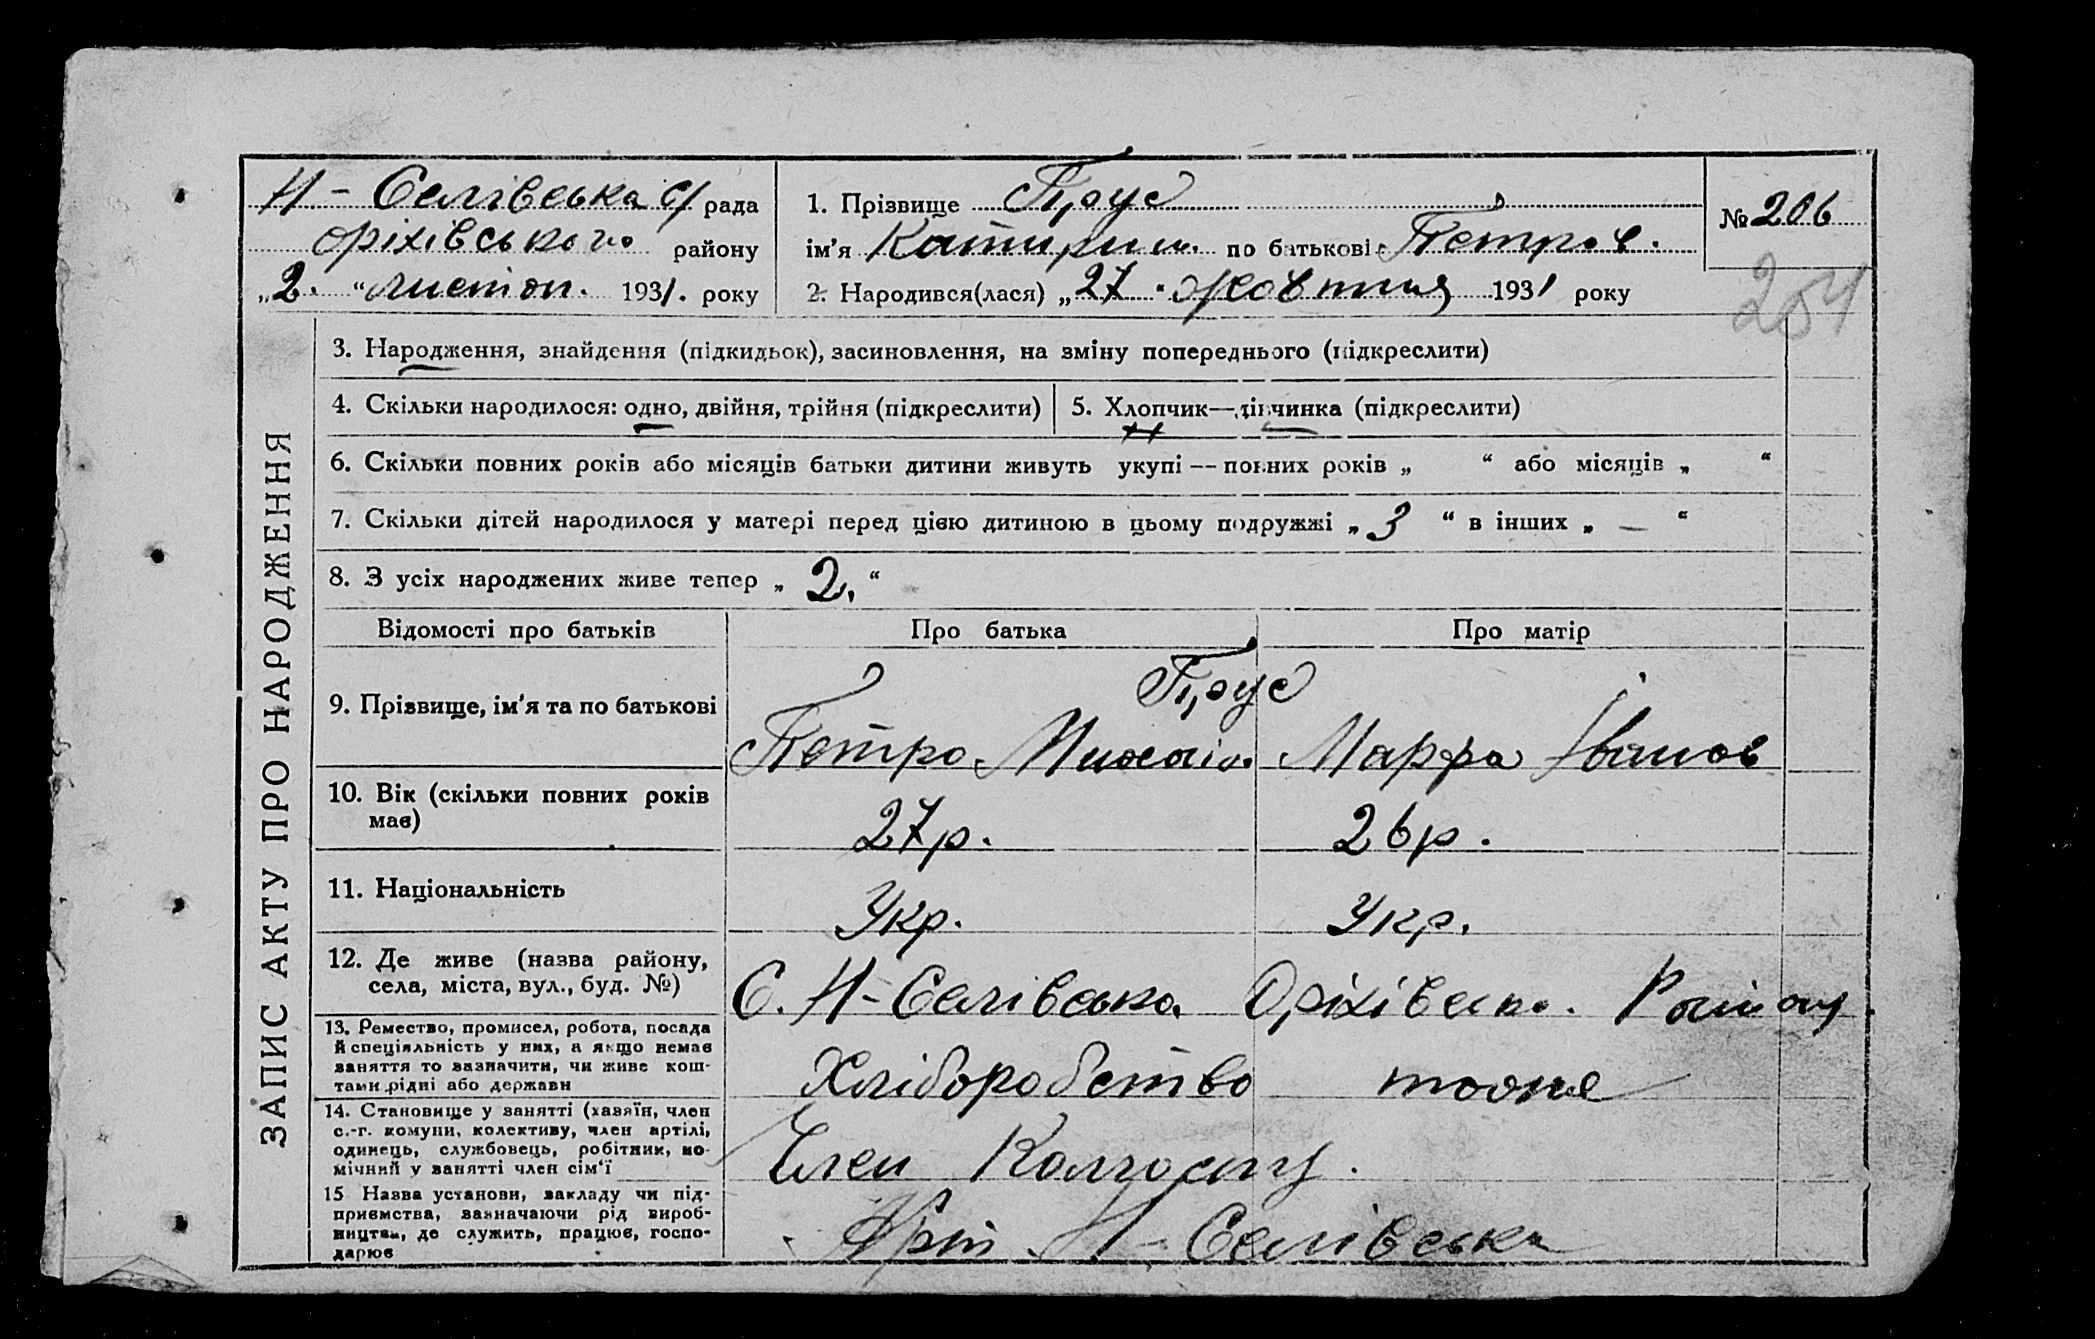 Н-Селівська с/рада
Оріхівського району
„2.“ листоп. 1931. року
1. Прізвище Прус
ім’я Катирин. по батькові Петров.
2. Народився(лася) „27“ жовтня 1931 року
№ 206
254
ЗАПИС АКТУ ПРО НАРОДЖЕННЯ
3. Народження, знайдення (підкидьок), засиновлення, на зміну попереднього (підкреслити)
4. Скільки народилося: одно, двійня, трійня (підкреслити)
5. Хлопчик—дівчинка (підкреслити)
6. Скільки повних років або місяців батьки дитини живуть укупі — повних років „ “ або місяців „ “
7. Скільки дітей народилося у матері перед цією дитиною в цьому подружжі „3“ в інших „—“
8. З усіх народжених живе тепер „2.“
Відомості про батьків Про батька Про матір
Прус
9. Прізвище, ім’я та по батькові Петро Михайл. Марфа Іванов
10. Вік (скільки повних років
має) 27р. 26р.
11. Національність Укр. Укр.
12. Де живе (назва району,
села, міста, вул., буд. №) С. Н-Селівська Оріхівськ. Району.
13. Ремество, промисел, робота, посада
й спеціяльність у них, а якщо немає
заняття то зазначити, чи живе кош-
тами рідні або держави
Хліборобство тоже
14. Становище у занятті (хазяїн, член
с.-г. комуни, колективу, член артілі,
одинець, службовець, робітник, по-
мічний у занятті член сім’ї
Член Колгоспу.
15 Назва установи, закладу чи під-
приємства, зазначаючи рід вироб-
ництва, де служить, працює, госпо-
дарює
Арт. Н-Селівська